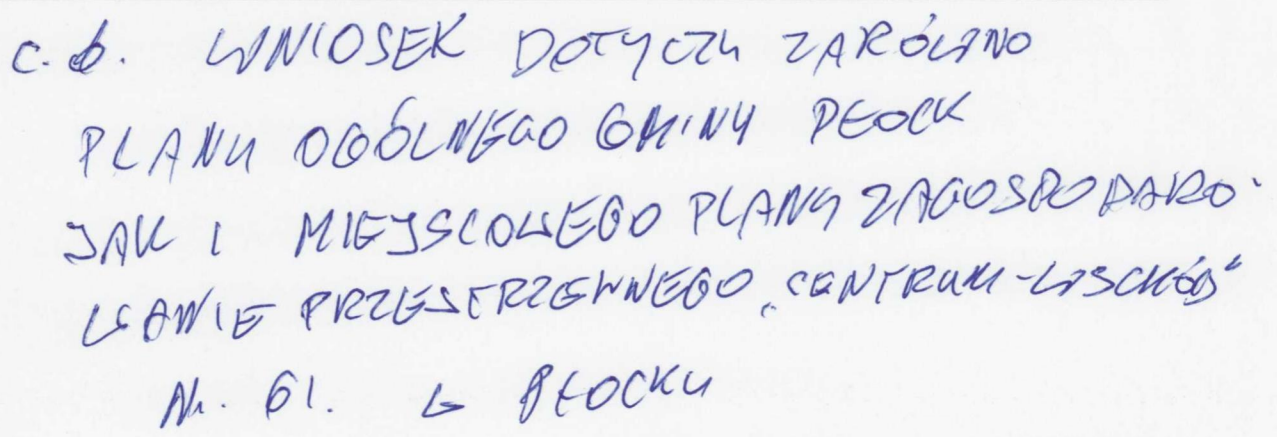 C.d. WNIOSEK DOTYCZY ZARÓWNO
PLANU OGÓLNEGO GMINY PŁOCK
JAK I MIEJSCOWEGO PLANU ZAGOSPODARO-
WANIE PRZESTRZENNEGO „CENTRUM-WSCHÓD"
Nr. 61. W PŁOCKU